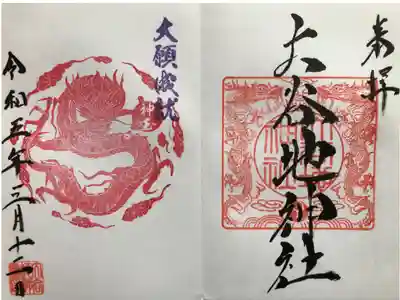 奉拝
大谷地神社
大願成就
令和五年三月十二日